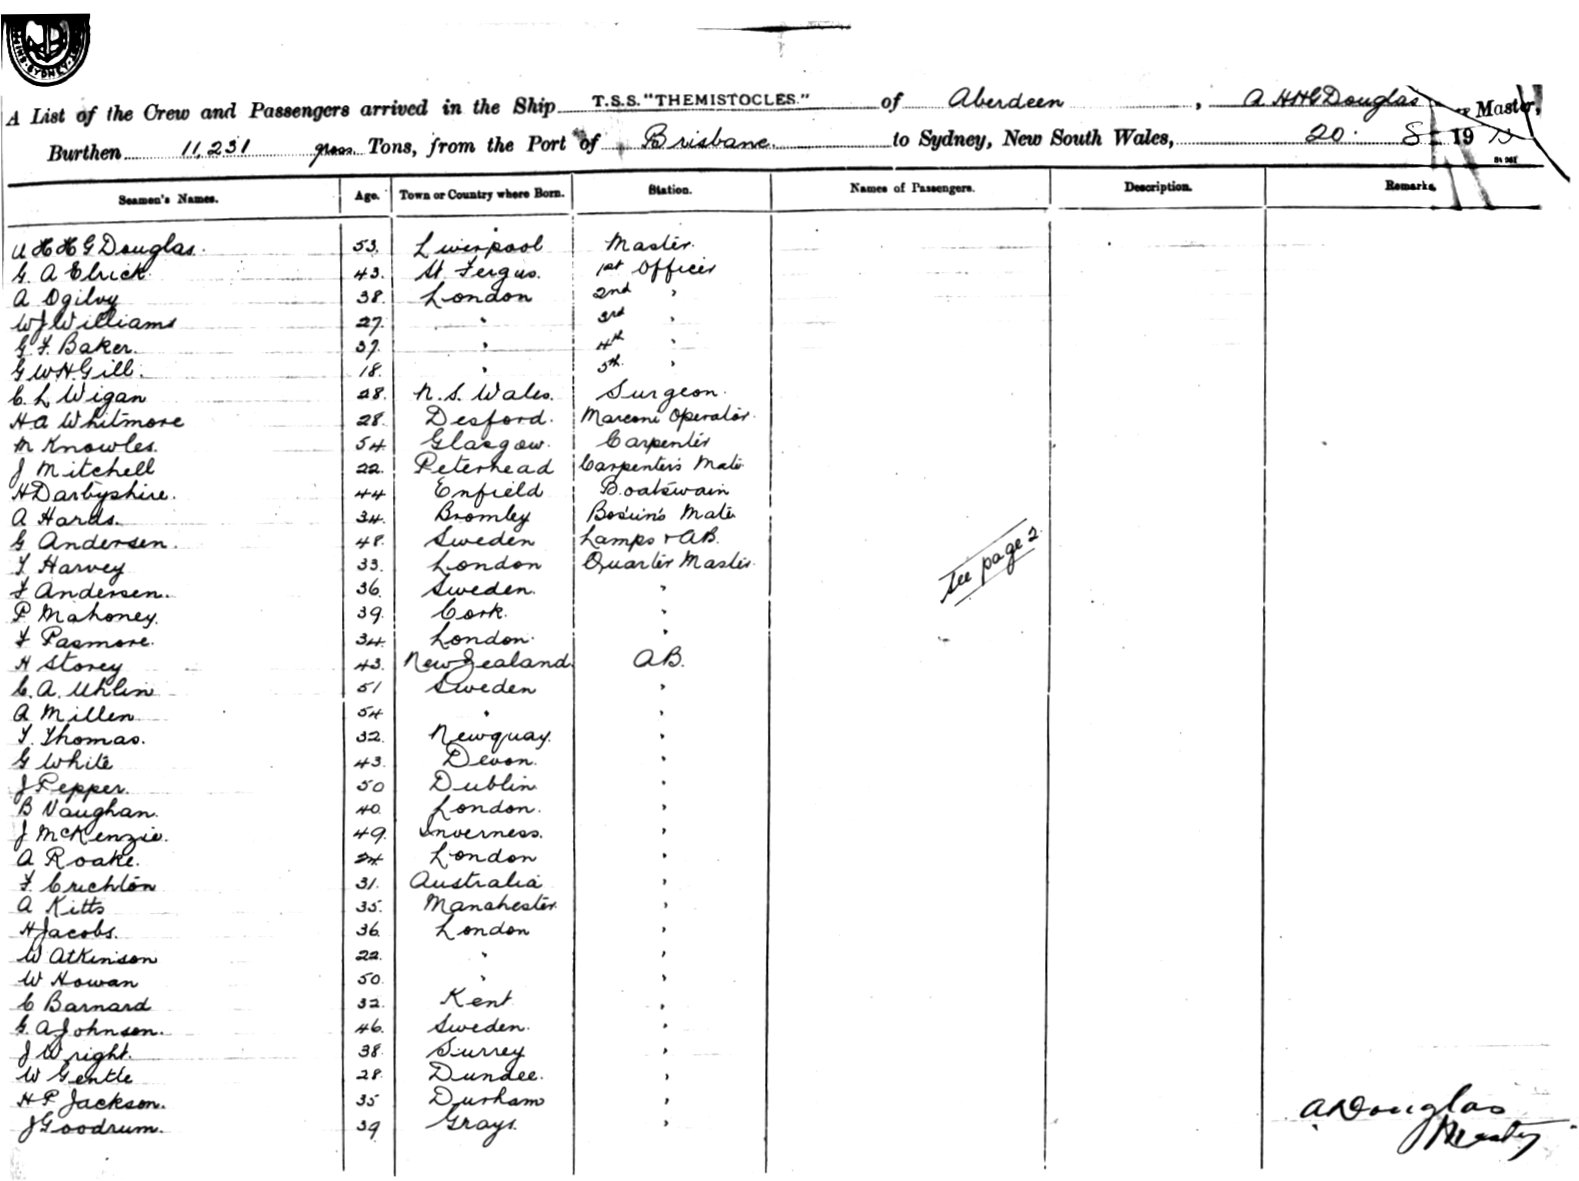 SYDNEY
A List of the Crew and Passengers arrived in the Ship T.S.S. "THEMISTOCLES." of Aberdeen, A H H G Douglas Master,
Burthen 11,231 gross Tons, from the Port of Brisbane to Sydney, New South Wales, 20. 8 19
Seamen's Names. Age. Town or Country where Born. Station. Names of Passengers. Description. Remarks.
A H H G Douglas. 53. Liverpool Master.
G. A Elrick 43. St Fergus. 1st Officer
A Ogilvy 38. London 2nd "
W J Williams 27. " 3rd "
G F. Baker. 37. " 4th "
G W H Gill. 18. " 5th. "
C. L Wigan 28. N. S. Wales. Surgeon.
H A Whitmore 28. Desford. Marconi Operator.
M Knowles. 54 Glasgow. Carpenter
J Mitchell 22. Peterhead Carpenter's Mate
H Darbyshire. 44 Enfield Boatswain
A Hards. 34. Bromley Bosun's Mate
G Andersen. 48. Sweden Lamps + AB.
T Harvey 33. London Quarter Master.
F Andersen. 36. Sweden. "
P Mahoney. 39. Cork. "
F Pasmore. 34. London. "
H Storey 43. New Zealand AB.
C. A. Uhlin 51 Sweden "
A Millen 54 " "
T. Thomas. 32. Newquay. "
G White 43. Devon. "
J Pepper. 50 Dublin "
B Vaughan. 40. London. "
J McKenzie. 49. Inverness. "
A Roake. 24 London "
F. Crichton 31. Australia "
A Kitts 35. Manchester "
H Jacobs. 36. London "
W Atkinson 22. " "
W Howan 50. " "
C Barnard 32 Kent "
G. A Johnson. 46. Sweden. "
J Wright. 38. Surrey "
W Gentle 28. Dundee. "
H P Jackson. 35 Durham "
J Goodrum. 39 Grays. "
See page 2.
A Douglas
Master